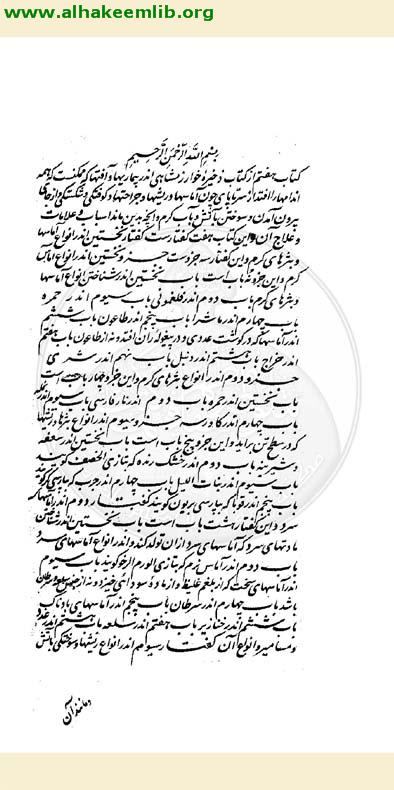 www.alhakeemlib.org
بسم الله الرحمن الرحیم
کتاب هفتم از کتاب ذخیره خوارزمشاهی اندر بیماریها و آفتها که ممکنست که همه
اندامها را افتد از سر تا پای چون آماسها و ریشها و جراحتها و کوفتگی و شکستگی و از جای
بیرون آمدن و سوختن باتش و آب گرم و آنچه بدین ماند اسباب و علامات
و علاج آن و این کتاب هفت گفتار ست گفتار نخستین اندر انواع آماسها
و بثرهای گرم و این گفتار سه جزوست جزو نخستین اندر انواع آماس
گرم و این جزو نه باب است باب نخستین اندر شناختن انواع آماسها
و بثرهای گرم باب دوم اندر فلغمونی باب سیوم اندر حمره
باب چهارم اندر ماشرا باب پنجم اندر طاعون باب ششم
اندر آماسها که در گوشت غددی و در بیغوله ران افتد و نه از طاعون باب هفتم
اندر خراج باب هشتم اندر دنبل باب نهم اندر شری
جزو دوم اندر انواع بثرهای گرم و این جزو چهار باب است
باب نخستین اندر جمره باب دوم اندر نار فارسی باب سیوم اندر نمله
باب چهارم اندر کاورسه جزو سیوم اندر انواع بثرها و ریشها
که در سطح تن براید و این جزو پنج باب است باب نخستین اندر سعفه
و شیرینه باب دوم اندر خشک ریزه که بتازی الحصف گویند
باب سیوم اندر بنات اللیل باب چهارم اندر جرب که بپارسی گر گویند
باب پنجم اندر قوبا که بپارسی بریون گویند گفتار دوم اندر آماسهای
سرد و این گفتار هشت باب است باب نخستین اندر شناختن
مادتهای سرد که آماسهای سرد از ان تولد کند و اندر انواع آماسهای سرد
باب دوم اندر آماس نرم که بتازی الورم الرخو گویند باب سیوم
اندر آماسهای سخت که از بلغم غلیظ و از ماده سودائی خیزد و نه از جنس سلعه و سرطان
باشد باب چهارم اندر سرطان باب پنجم اندر آماسهای بادناک
باب ششم اندر خنازیر باب هفتم اندر سلعه باب هشتم اندر غدد
و مسامیر و انواع آن گفتار سیوم اندر انواع ریشها و سوختگی باتش
و مانند آن